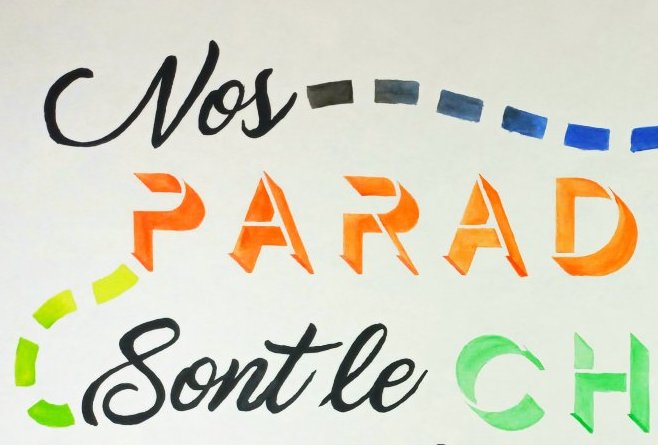 Nos
PARAD
Sont le CH